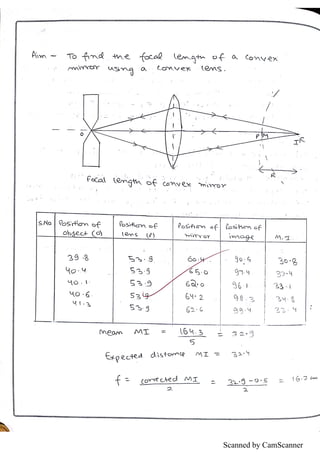 Aim - To find the focal length of a convex
mirror using a convex lens.
O
P
M
I
R
Focal length of convex mirror
S.No Position of object (O) Position of lens (L) Position of mirror Position of image M.I
39.8 53.9 60.4 90.6 30.8
40.4 53.9 65.0 97.4 32.4
40.1 53.9 62.0 96.1 33.1
40.6 53.9 64.2 98.3 34.8
41.3 53.9 62.6 99.4 32.4
mean MI = 164.3 / 5 = 32.9
Expected distance MI = 32.4
f = corrected MI / 2 = 32.9 - 0.5 / 2 = 16.2 cm
Scanned by CamScanner